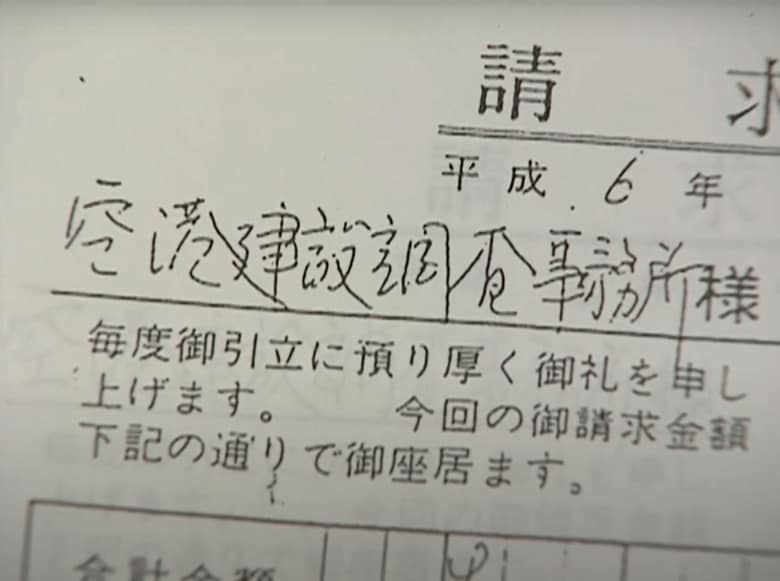 請求
平成 6 年
空港建設調査事務所様
毎度御引立に預り厚く御礼を申し
上げます。 今回の御請求金額
下記の通りで御座居ます。
合計金額